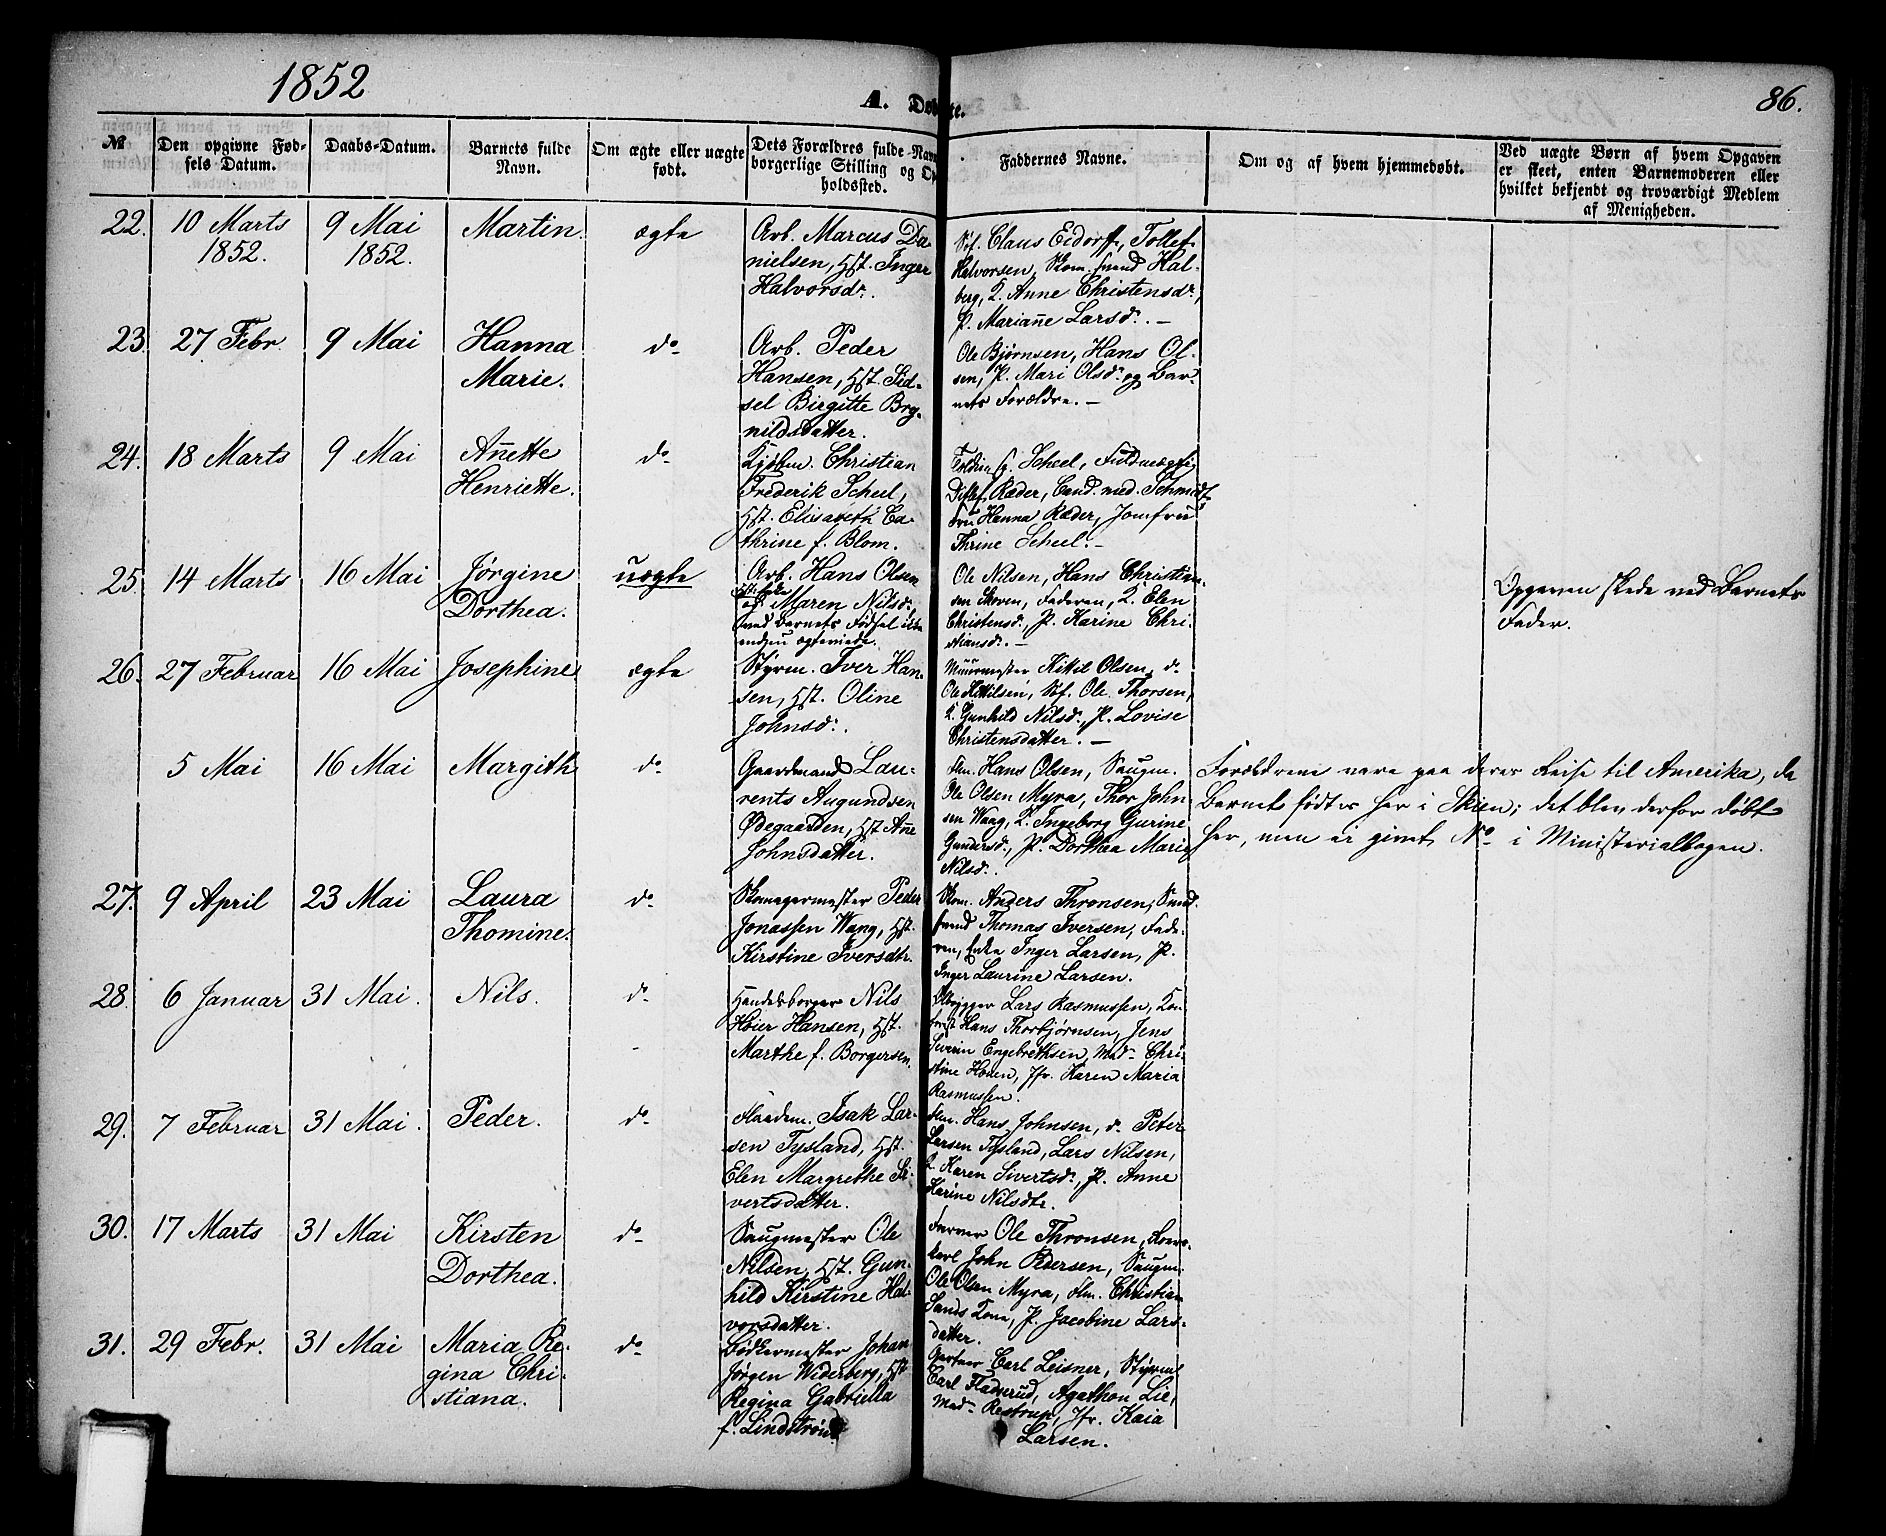 1852
A. Døbte.
86.
No
Den opgivne Fødsels Datum.
Daabs-Datum.
Barnets fulde Navn.
Om ægte eller uægte født.
Dets Forældres fulde Navn borgerlige Stilling og Opholdsted.
Faddernes Navne.
Om og af hvem hjemmedøbt.
Ved uægte Børn af hvem Opgaven er skeet, enten Barnemoderen eller hvilket bekjendt og troværdigt Medlem af Menigheden.
22. 10 Marts 9 Mai Martin. ægte
1852. 1852.
Arb. Marcus Da-
nielsen, Hst. Inger
Halvorsdr.
Claus Eidorff, Tollef
Halvorsen, Skom. svend Hal-
berg, K. Anne Christensdr,
P. Mariañe Larsdr. –
23. 27 Febr. 9 Mai Hanna do
Marie.
Arb. Peder
Hansen, Hst. Sid-
sel Birgitte Bryn-
nildsdatter.
Ole Bjørnsen, Hans Ol-
sen, P. Mari Olsdr. og Bar-
nets Forældre. –
24. 18 Marts 9 Mai Añette do
Henriette.
Kjøbm. Christian
Frederik Scheel,
Hst. Elisabeth Ca-
thrine f. Blom.
Scheel, Fuldmægtig
Ditlef Ræder, Cand. med. Schmidt
Fru Hanna Ræder, Jomfru
Thrine Scheel. –
25. 14 Marts 16 Mai Jørgine uægte
Dorthea.
Arb. Hans Olsen
og Maren Nilsdr,
ved Barnets Fødsel ikke
endnu ægteviede.
Ole Nilsen, Hans Christian-
sen Skoven, Faderen, K. Elen
Christensdr., P. Karine Chri-
stiansdr. –
Opgaven skede ved Barnets
Fader.
26. 27 Februar 16 Mai Josephine ægte
Styrm. Iver Han-
sen, Hst. Oline
Johnsdr.
Muurmester Kitil Olsen, do
Ole Kittilsen, Ole Thorsen,
K. Gunhild Nilsdr., P. Lovise
Christensdatter. –
5 Mai 16 Mai Margith do
Gaardmand Lau-
rents Augundsen
Ødegaarden, Hst Añe
Johnsdatter.
Flm. Hans Olsen, Saugm.
Ole Olsen Myra, Thor John
sen Waag, K. Ingeborg Gurine
Gundersdr., P. Dorthea Marie
Nilsdr.
Forældrene vare paa deres Reise til Amerika, da
Barnet fødtes her i Skien; det blev derfor døbt
her, men ei givet No i Ministerialbogen.
27. 9 April 23 Mai Laura do
Thomine.
Skomagermester Peder
Jonassen Wang, Hst.
Kirstine Iversdtr.
Skom. Anders Thronsen, Snid-
svend Thomas Iversen, Fade-
ren, Enke Inger Larsen, P.
Inger Laurine Larsen.
28. 6 Januar 31 Mai. Nils. do
Handelsborger Nils
Høier Hansen, Hst.
Marthe f. Borgersen.
Lars Rasmussen, Kon-
Hans Thorbjørnsen, Jens
Severin Engebrethsen, Mad. Chri-
stine Høuen, Jfr. Karen Maria
Rasmussen.
29. 7 Februar 31 Mai. Peder. do
Isak Lar-
sen Tysland, Hst.
Elen Margrethe Si-
vertsdatter.
Flm. Hans Johnsen, do Peter
Larsen Tysland, Lars Nilsen,
K. Karen Sivertsdr, P. Anne
Karine Nilsdtr.
30. 17 Marts 31 Mai Kirsten do
Dorthea.
Saugmester Ole
Nilsen, Hst. Gun-
hild Kirstine Hal-
vorsdatter.
Farver Ole Thronsen,
karl John Pedersen, Saugm.
Ole Olsen Myra, Flm. Christian
Sands Kone, P. Jacobine Lars-
datter.
31. 29 Febr. 31 Mai Maria Re- do
gina Chri-
stiana.
Bødkermester Johan
Jørgen Widerberg, Hst
Regina Gabriella
f. Lindstrøm.
Gartner Carl Leisner, Styrm
Carl Fladerud, Agathon Lie,
Mad. Restrup, Jfr. Kaia
Larsen.